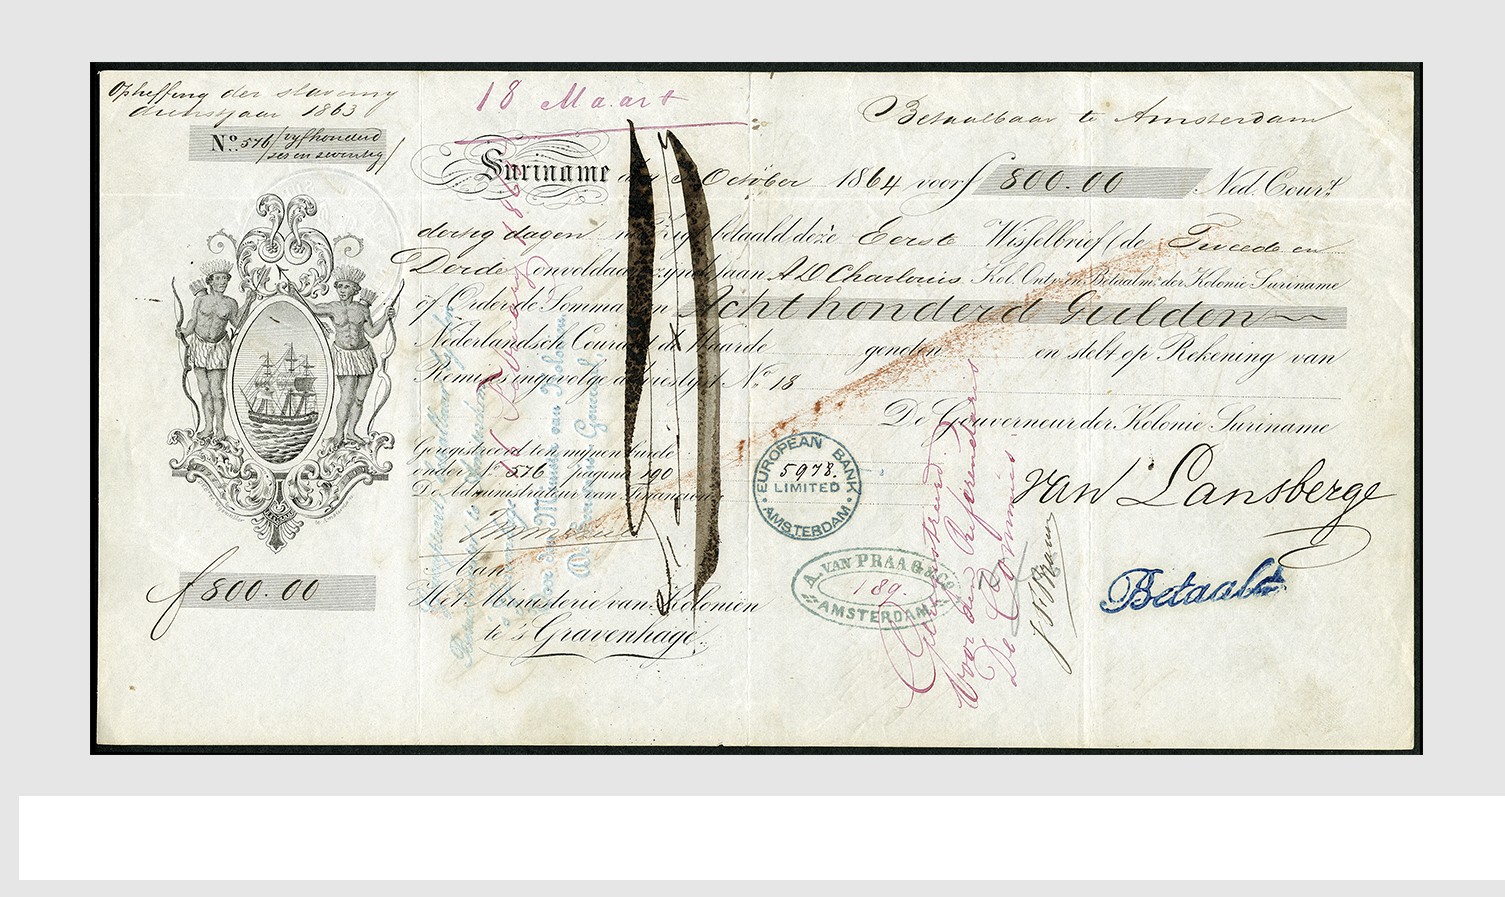 Opheffing der slaverny
dienstjaar 1863
No. 576 / vyfhonderd
/ zes en zeventig /
18 Maart
Betaalbaar te Amsterdam
Suriname October 1864 voor f 800.00 Ned. Court
dertig dagen betaald deze Eerste Wisselbrief (de Tweede en
Derde onvoldaan zynde) aan A D Charlouis Kol. Ontv. en Betaalmr. der Kolonie Suriname
of Order de Somma van Achthonderd Gulden
Nederlandsch Courant de Waarde genoten en stelt op Rekening van
Remises ingevolge adviesbrief No. 18
De Gouverneur der Kolonie Suriname
van Lansberge
Geregistreerd ten mynen burele
onder No. 576 pagina 190
De Administrateur van Financien
Aan
Het Ministerie van Kolonien
te 's Gravenhage.
f 800.00
EUROPEAN BANK
5978.
LIMITED
AMSTERDAM
A. VAN PRAAG & Co
189.
AMSTERDAM
Betaald
Februarij
Geregistreerd.
Voor den Referendaris
De Commies